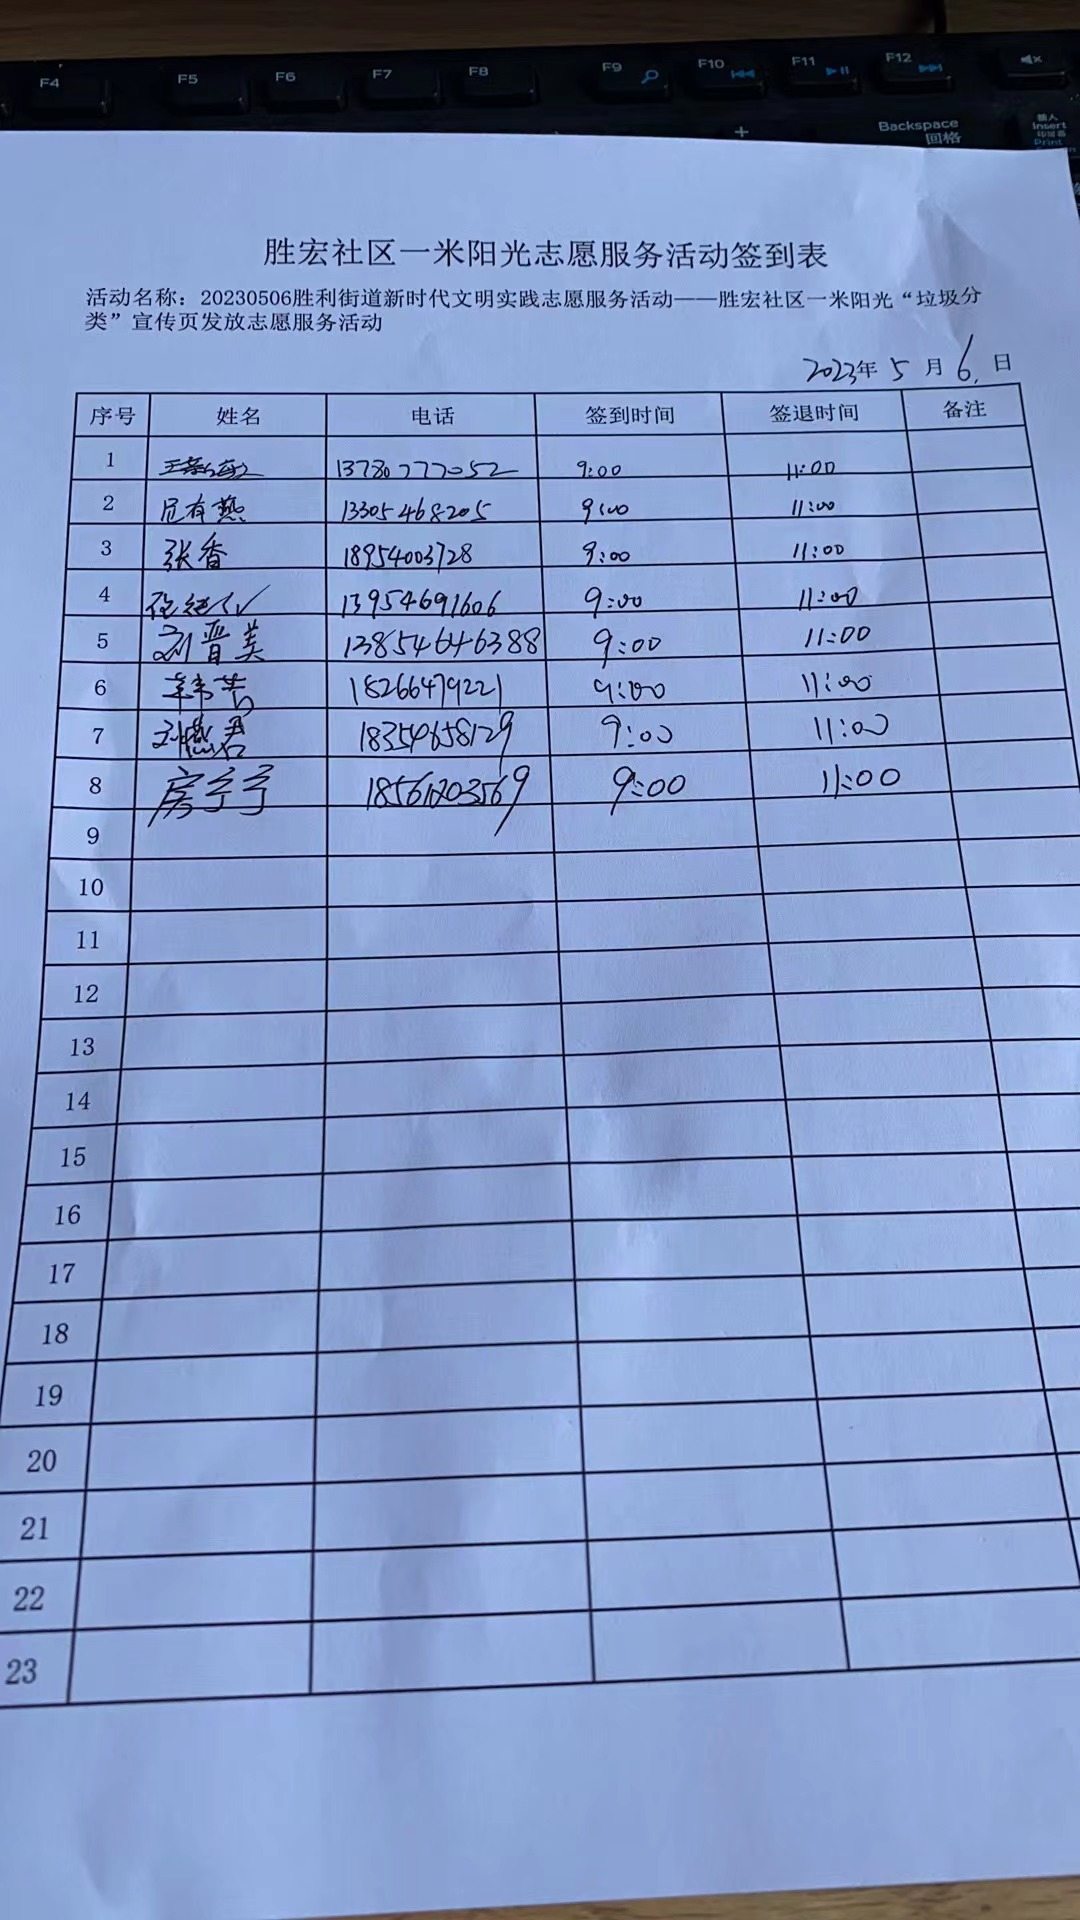 F4 F5 F6 F7 F8 F9 F10 F11 F12
+ Backspace 回格 插入 Insert Print
胜宏社区一米阳光志愿服务活动签到表
活动名称：20230506胜利街道新时代文明实践志愿服务活动——胜宏社区一米阳光“垃圾分
类”宣传页发放志愿服务活动
2023年 5 月 6 日
序号 姓名 电话 签到时间 签退时间 备注
1 13780777052 9:00 11:00
2 13305468205 9:00 11:00
3 张香 18954003728 9:00 11:00
4 13954691606 9:00 11:00
5 刘晋美 13854646388 9:00 11:00
6 18266479221 9:00 11:00
7 刘燕君 18354658129 9:00 11:00
8 房宁宁 18561203569 9:00 11:00
9
10
11
12
13
14
15
16
17
18
19
20
21
22
23